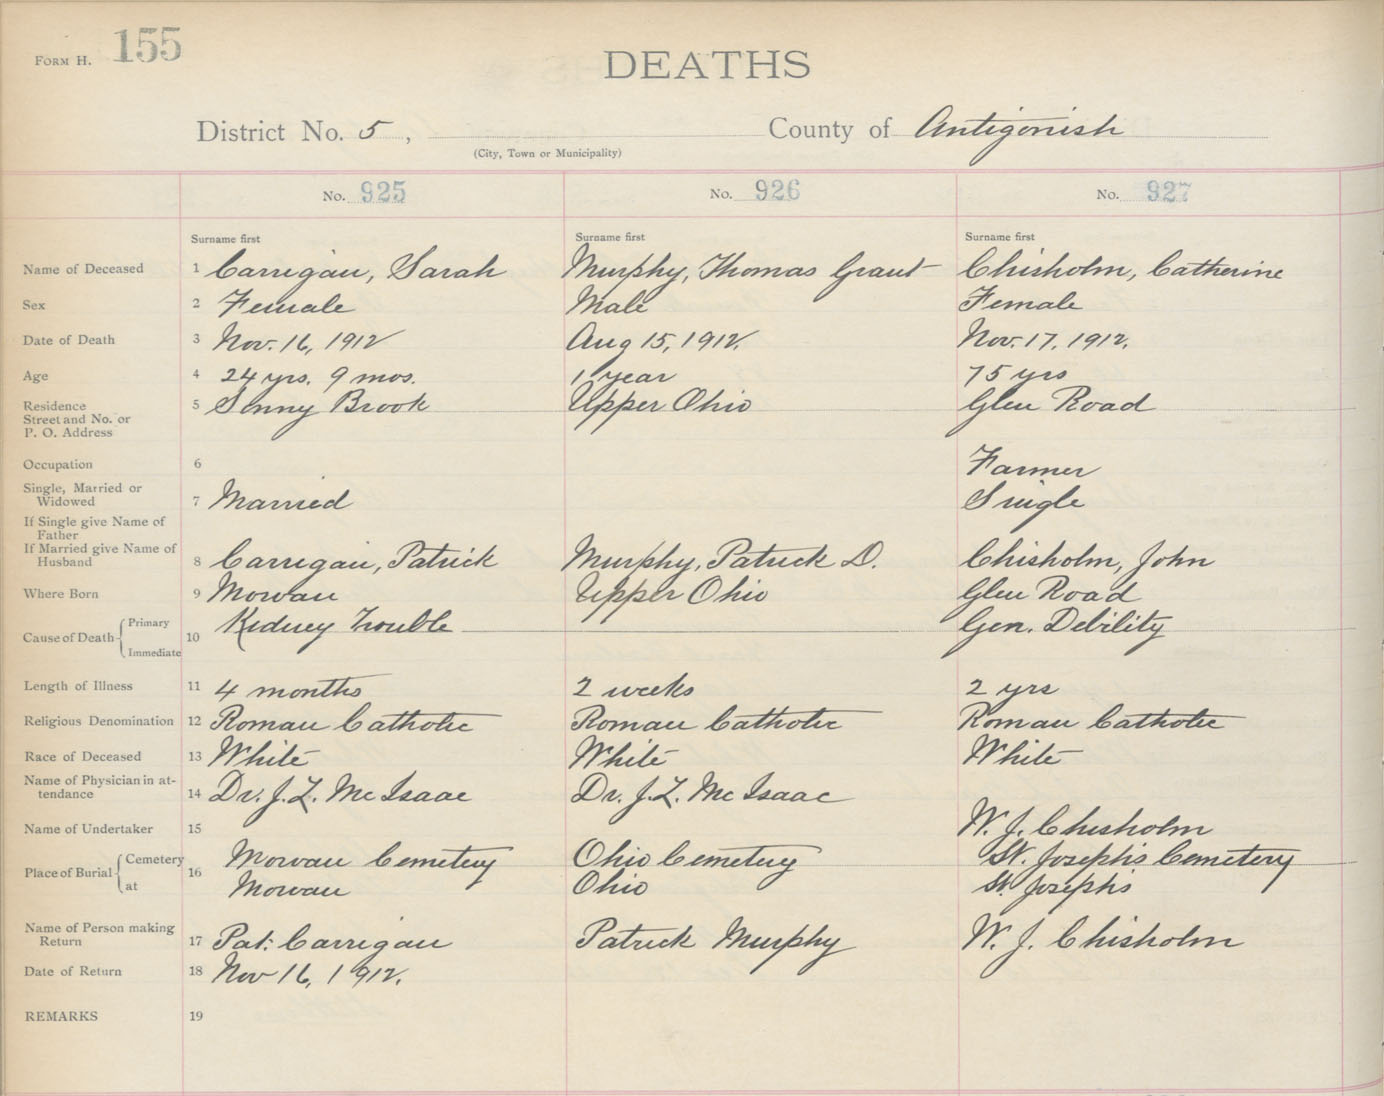 FORM H. 155
DEATHS
District No. 5, County of Antigonish
(City, Town or Municipality)
No. 925 No. 926 No. 927
Surname first Surname first Surname first
Name of Deceased 1 Carrigan, Sarah Murphy, Thomas Grant Chisholm, Catherine
Sex 2 Female Male Female
Date of Death 3 Nov. 16, 1912 Aug 15, 1912. Nov. 17, 1912.
Age 4 24 yrs. 9 mos. 1 year 75 yrs
Residence 5 Sunny Brook Upper Ohio Glen Road
Street and No. or
P. O. Address
Occupation 6 Farmer
Single, Married or
Widowed 7 Married Single
If Single give Name of
Father
If Married give Name of
Husband 8 Carrigan, Patrick Murphy, Patrick D. Chisholm, John
Where Born 9 Mowan Upper Ohio Glen Road
Cause of Death Primary 10 Kidney Trouble Gen. Debility
Immediate
Length of Illness 11 4 months 2 weeks 2 yrs
Religious Denomination 12 Roman Catholic Roman Catholic Roman Catholic
Race of Deceased 13 White White White
Name of Physician in at-
tendance 14 Dr. J. L. McIsaac Dr. J. L. McIsaac
Name of Undertaker 15 W. J. Chisholm
Place of Burial Cemetery 16 Mowan Cemetery Ohio Cemetery St. Joseph's Cemetery
at Mowan Ohio St. Joseph's
Name of Person making
Return 17 Pat: Carrigan Patrick Murphy W. J. Chisholm
Date of Return 18 Nov 16, 1912.
REMARKS 19